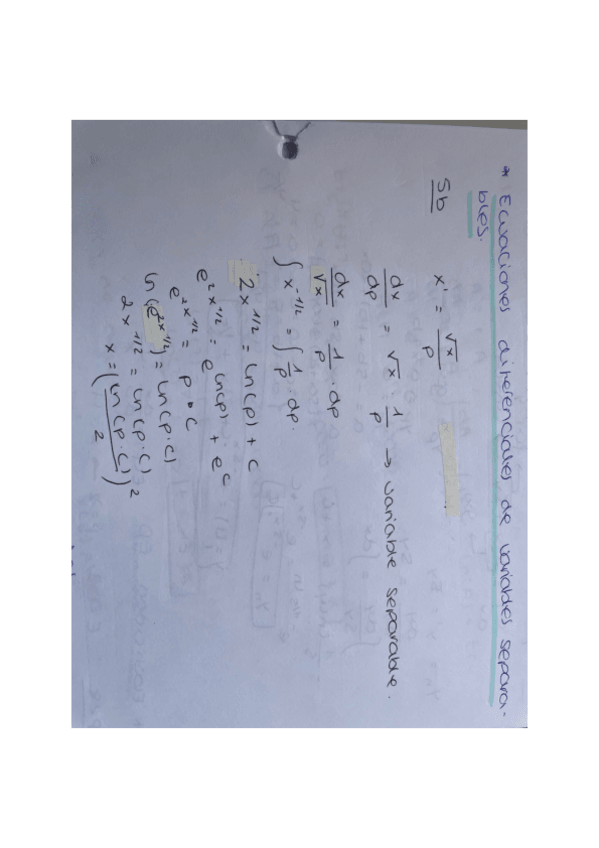 * Ecuaciones diferenciales de variables separa-
bles.
5b x' = √x / p
dx/dp = √x · 1/p → variable separable.
dx/√x = 1/p · dp
∫ x^-1/2 = ∫ 1/p · dp.
2x^1/2 = ln(p) + C
e^2x^1/2 = e^ln(p) + e^C
e^2x^1/2 = p · C
ln(e^2x^1/2) = ln(p·C)
2x^1/2 = ln(p·C)
x = (ln(p·C) / 2)^2